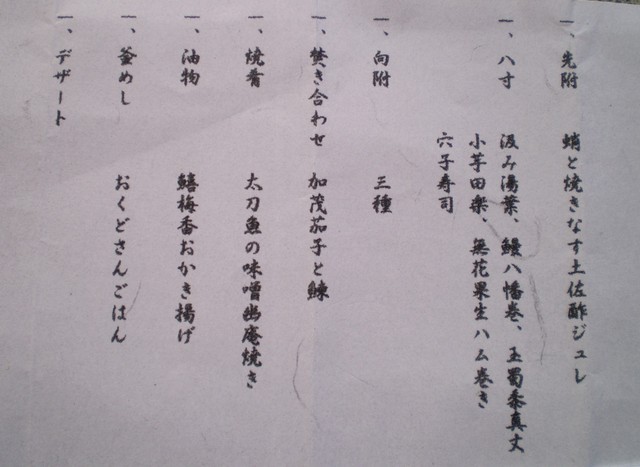 一、先附 蛸と焼きなす土佐酢ジュレ
一、八寸 汲み湯葉、鰻八幡巻、玉蜀黍真丈
小芋田楽、無花果生ハム巻き
穴子寿司
一、向附 三種
一、焚き合わせ 加茂茄子と鰊
一、焼肴 太刀魚の味噌幽庵焼き
一、油物 鱚梅香おかき揚げ
一、釜めし おくどさんごはん
一、デザート